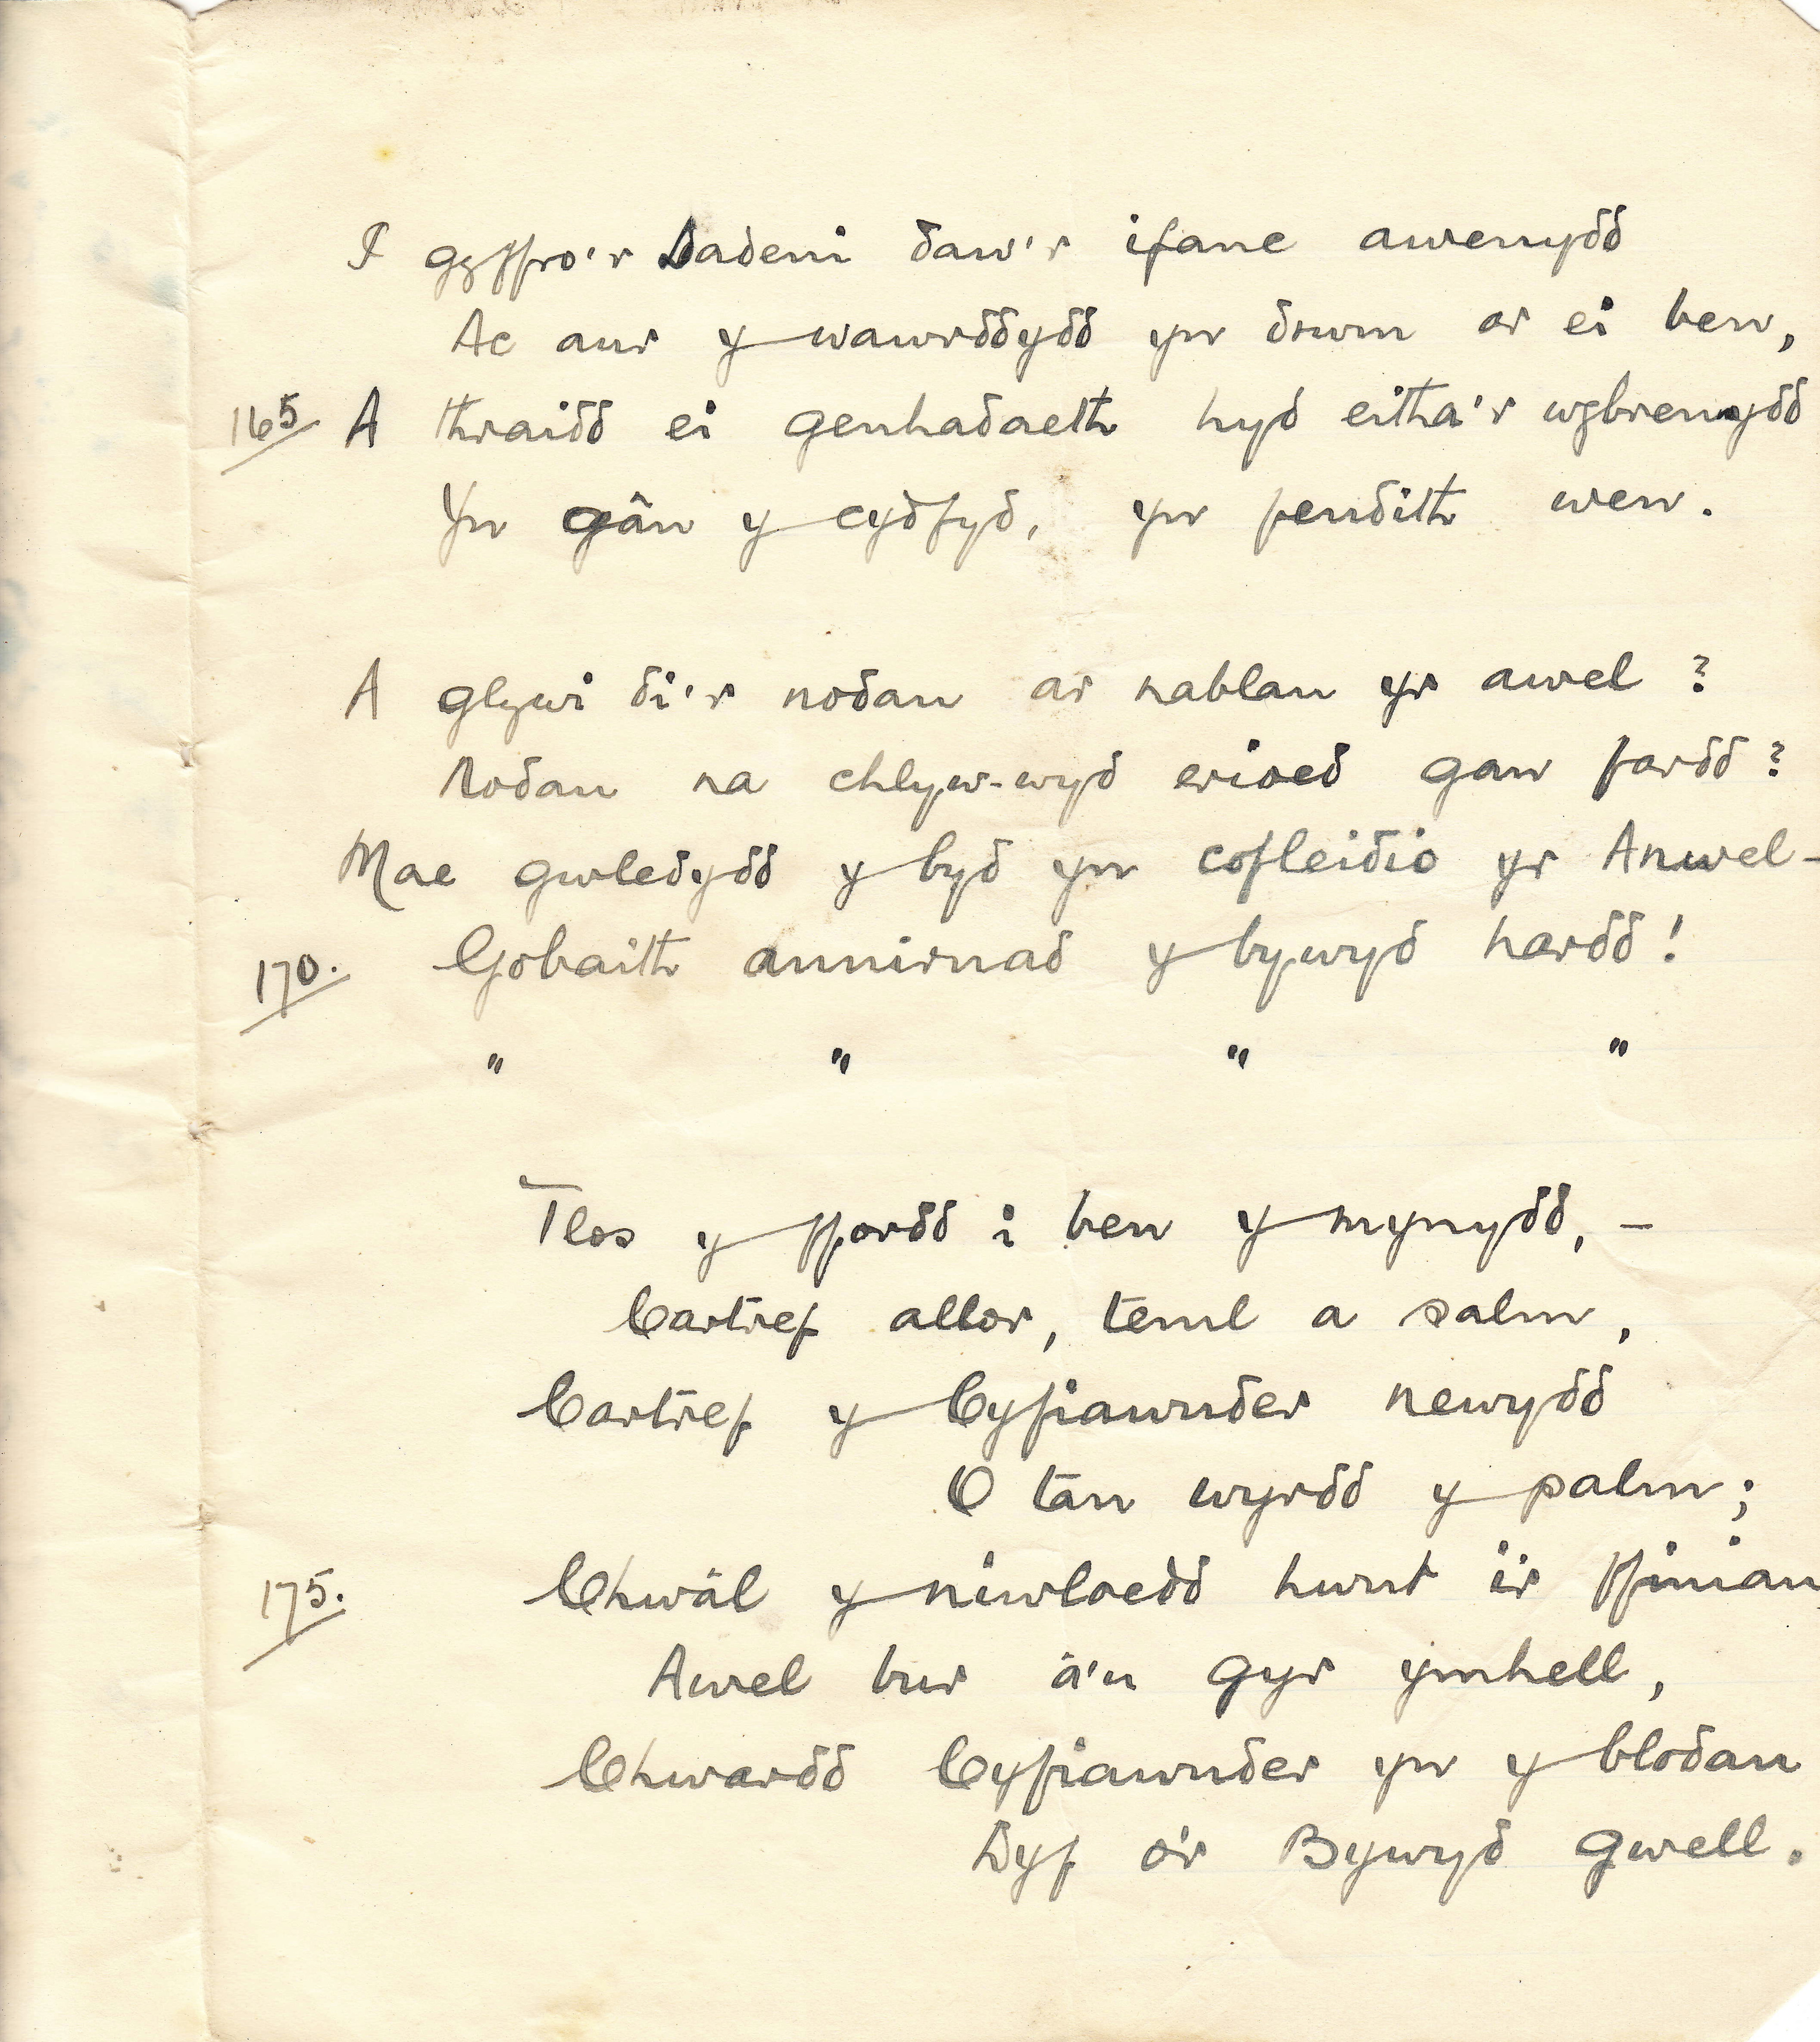 I gyffro'r Dadeni daw'r ifanc awenydd
Ac aur y wawrddydd yn drwm ar ei ben,
165 A thraidd ei genhadaeth hyd eitha'r wybrennydd
Yn gân y cydfyd, yn fendith wen.
A glywi di'r nodau ar nablau yr awel?
Nodau na chlyw-wyd erioed gan fardd?
Mae gwledydd y byd yn cofleidio yr Anwel-
170. Gobaith annirnad y bywyd hardd!
" " " "
Tlos y ffordd i ben y mynydd, -
Cartref allor, teml a salm,
Cartref y Cyfiawnder newydd
O tan wyrdd y palm;
175. Chwâl y niwloedd hwnt i'r ffiniau,
Awel bur â'u gyr ymhell,
Chwardd Cyfiawnder yn y blodau
Dyf o'r Bywyd gwell.